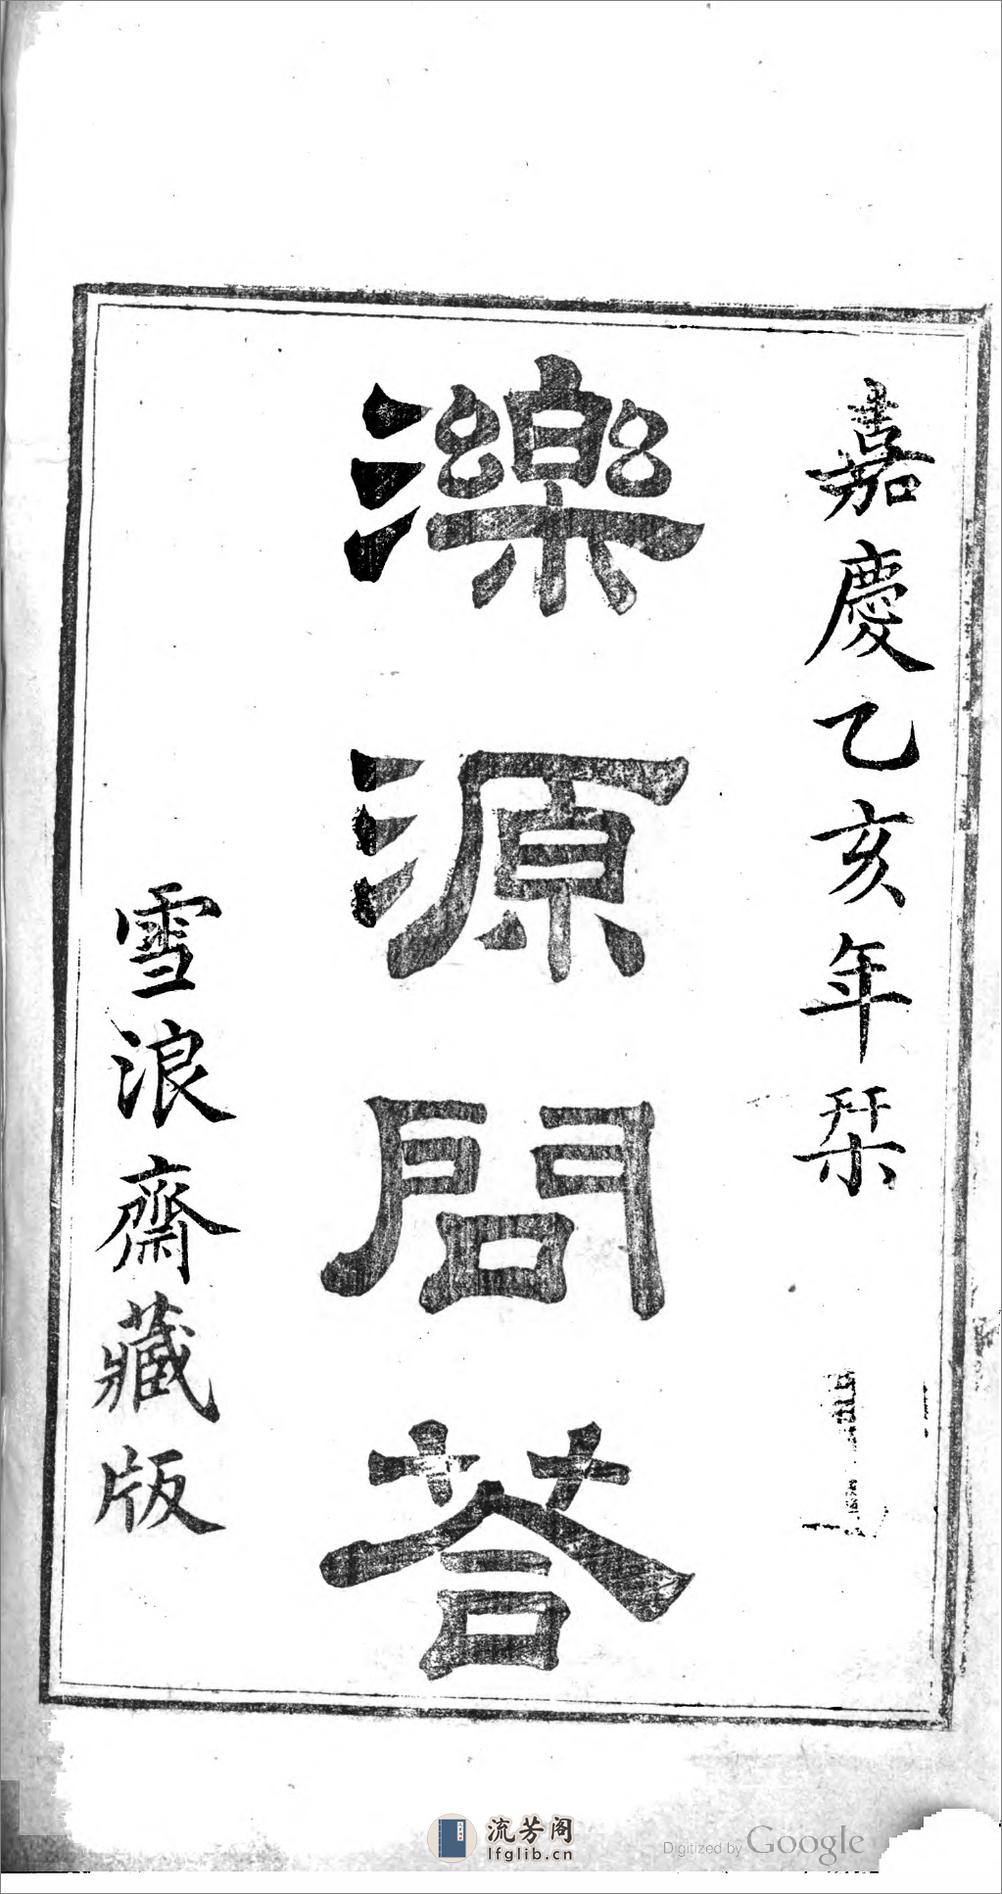 嘉慶乙亥年栞
濼源問荅
雪浪齋藏版
流芳阁
lfglib.cn
Digitized by Google